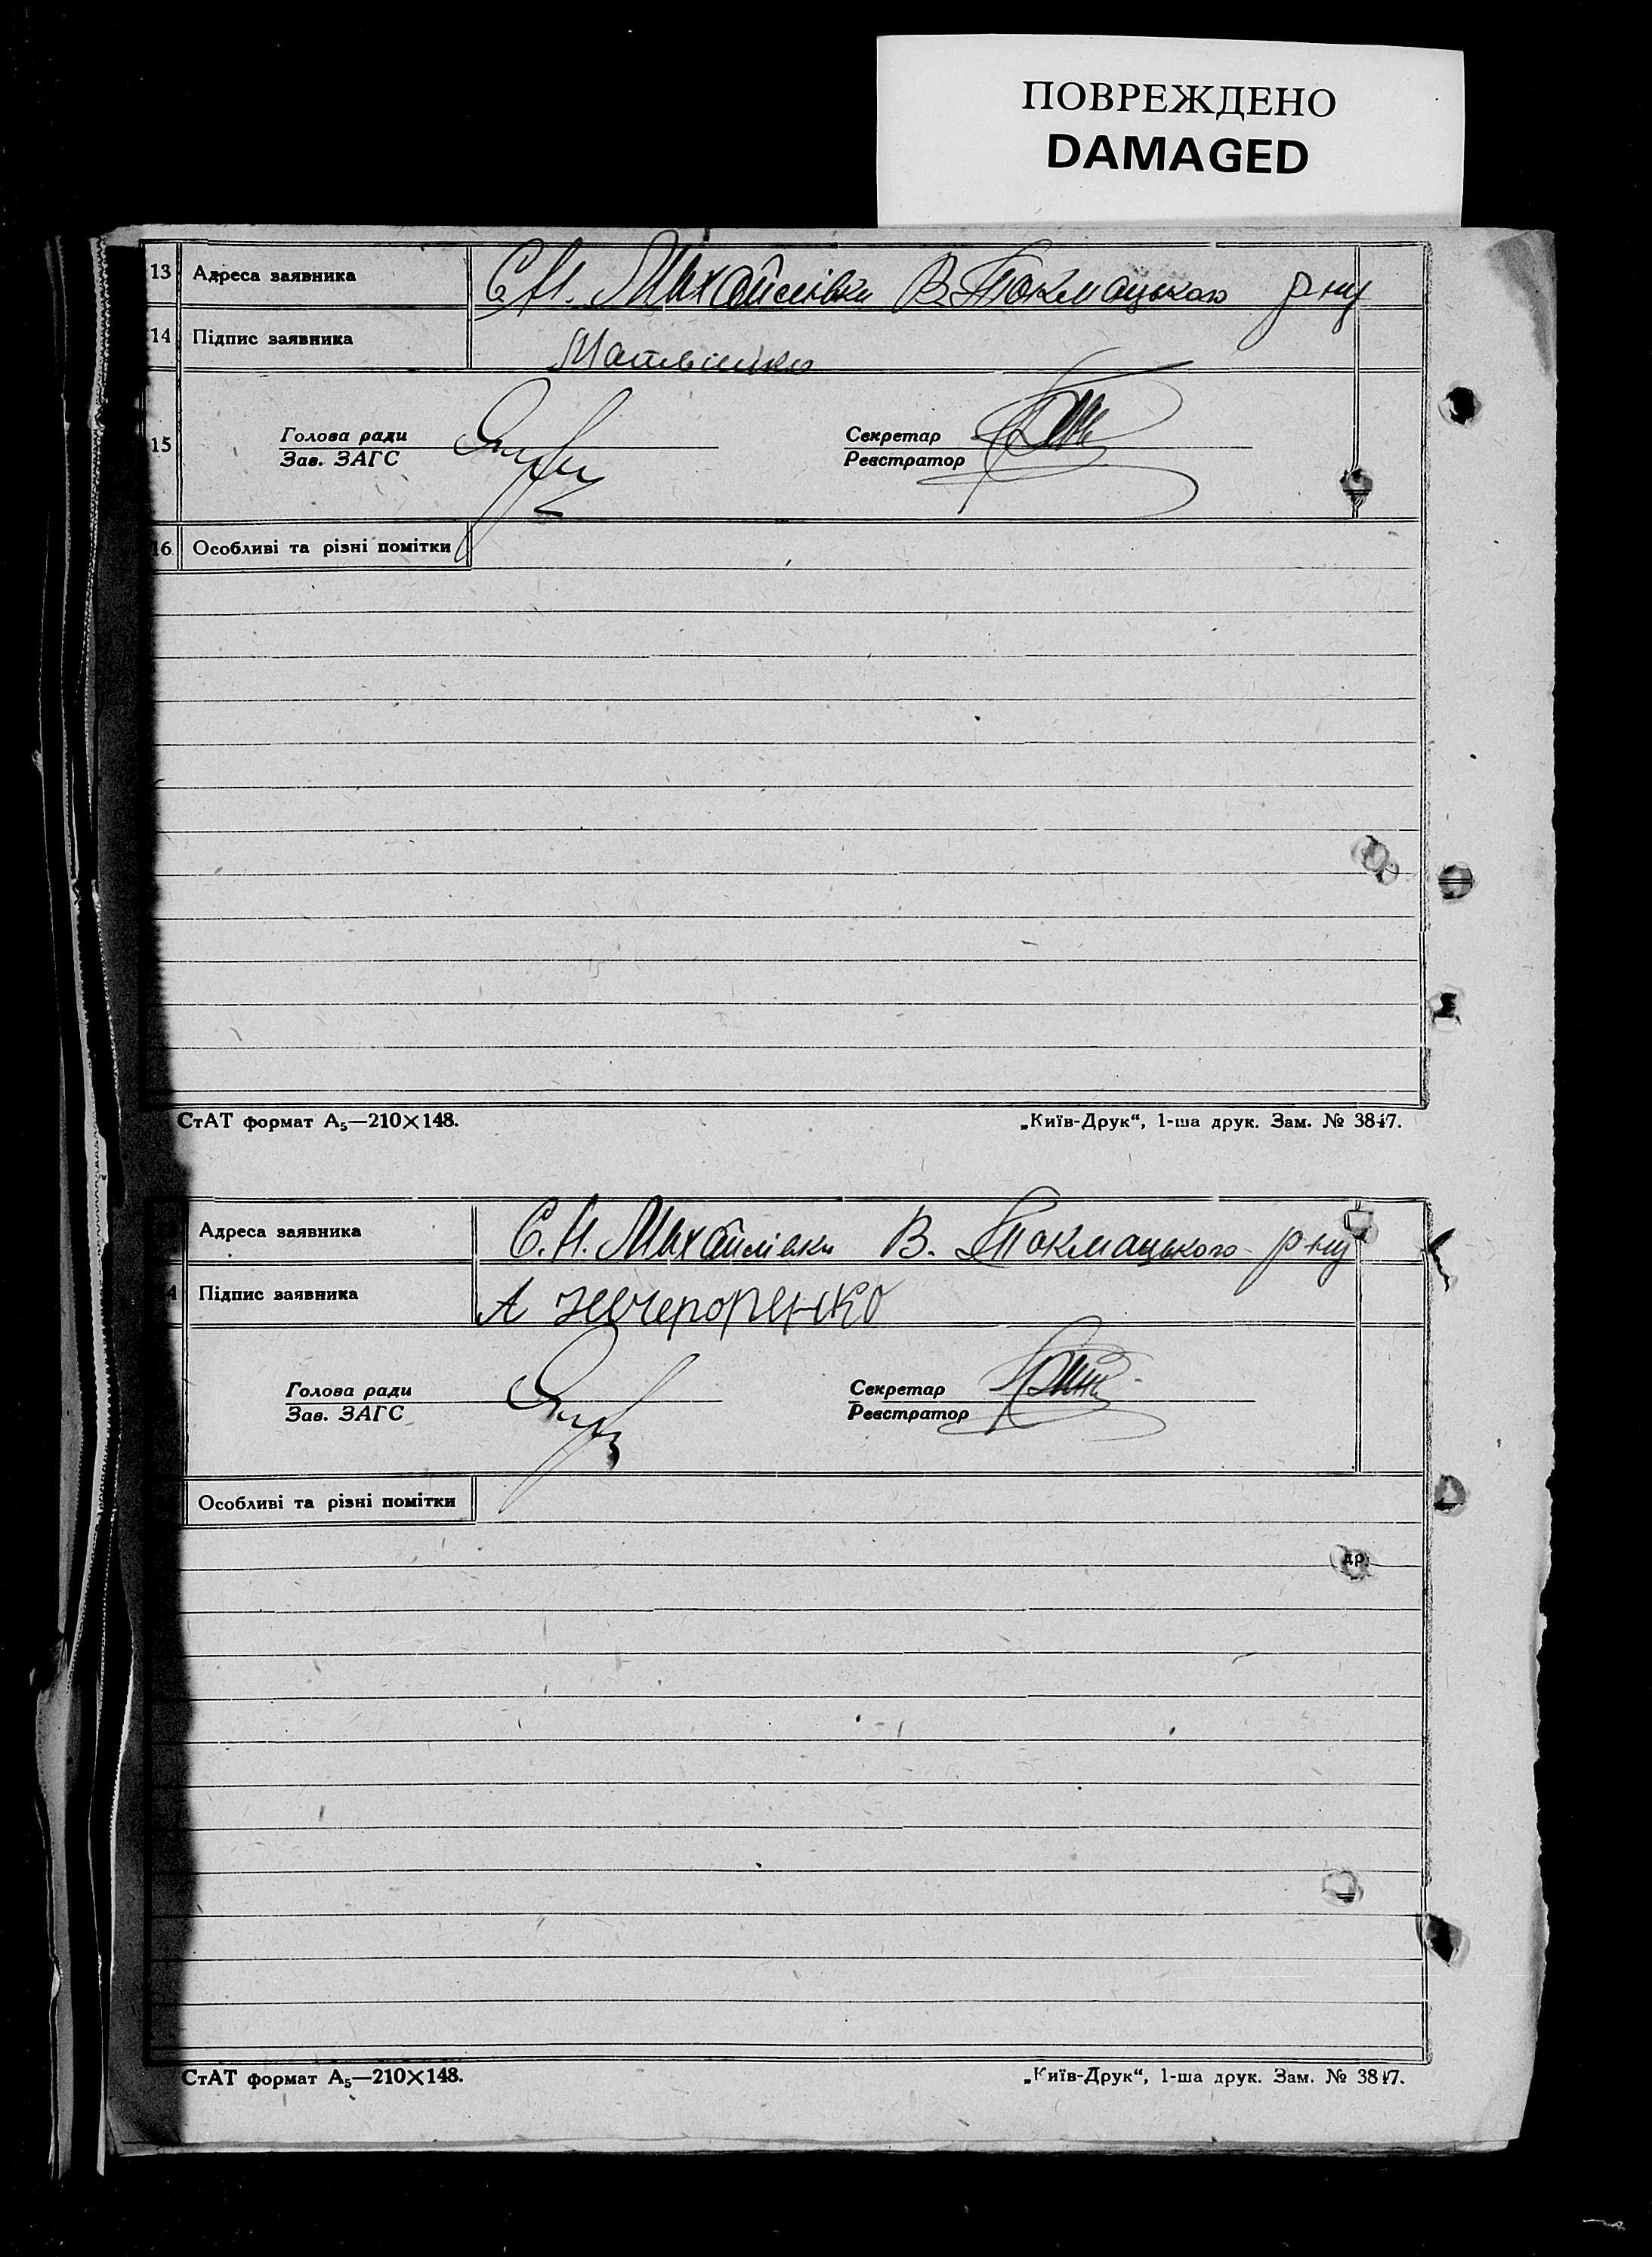 ПОВРЕЖДЕНО
DAMAGED
13 Адреса заявника С. Н. Михайлівки В. Токмацького р-ну
14 Підпис заявника
15 Голова ради Секретар
Зав. ЗАГС Реєстратор
16 Особливі та різні помітки
СтАТ формат А₅—210×148. „Київ-Друк“, 1-ша друк. Зам. № 3847.
Адреса заявника С. Н. Михайлівки В. Токмацького р-ну
4 Підпис заявника А
Голова ради Секретар
Зав. ЗАГС Реєстратор
Особливі та різні помітки
др.
СтАТ формат А₅—210×148. „Київ-Друк“, 1-ша друк. Зам. № 3847.